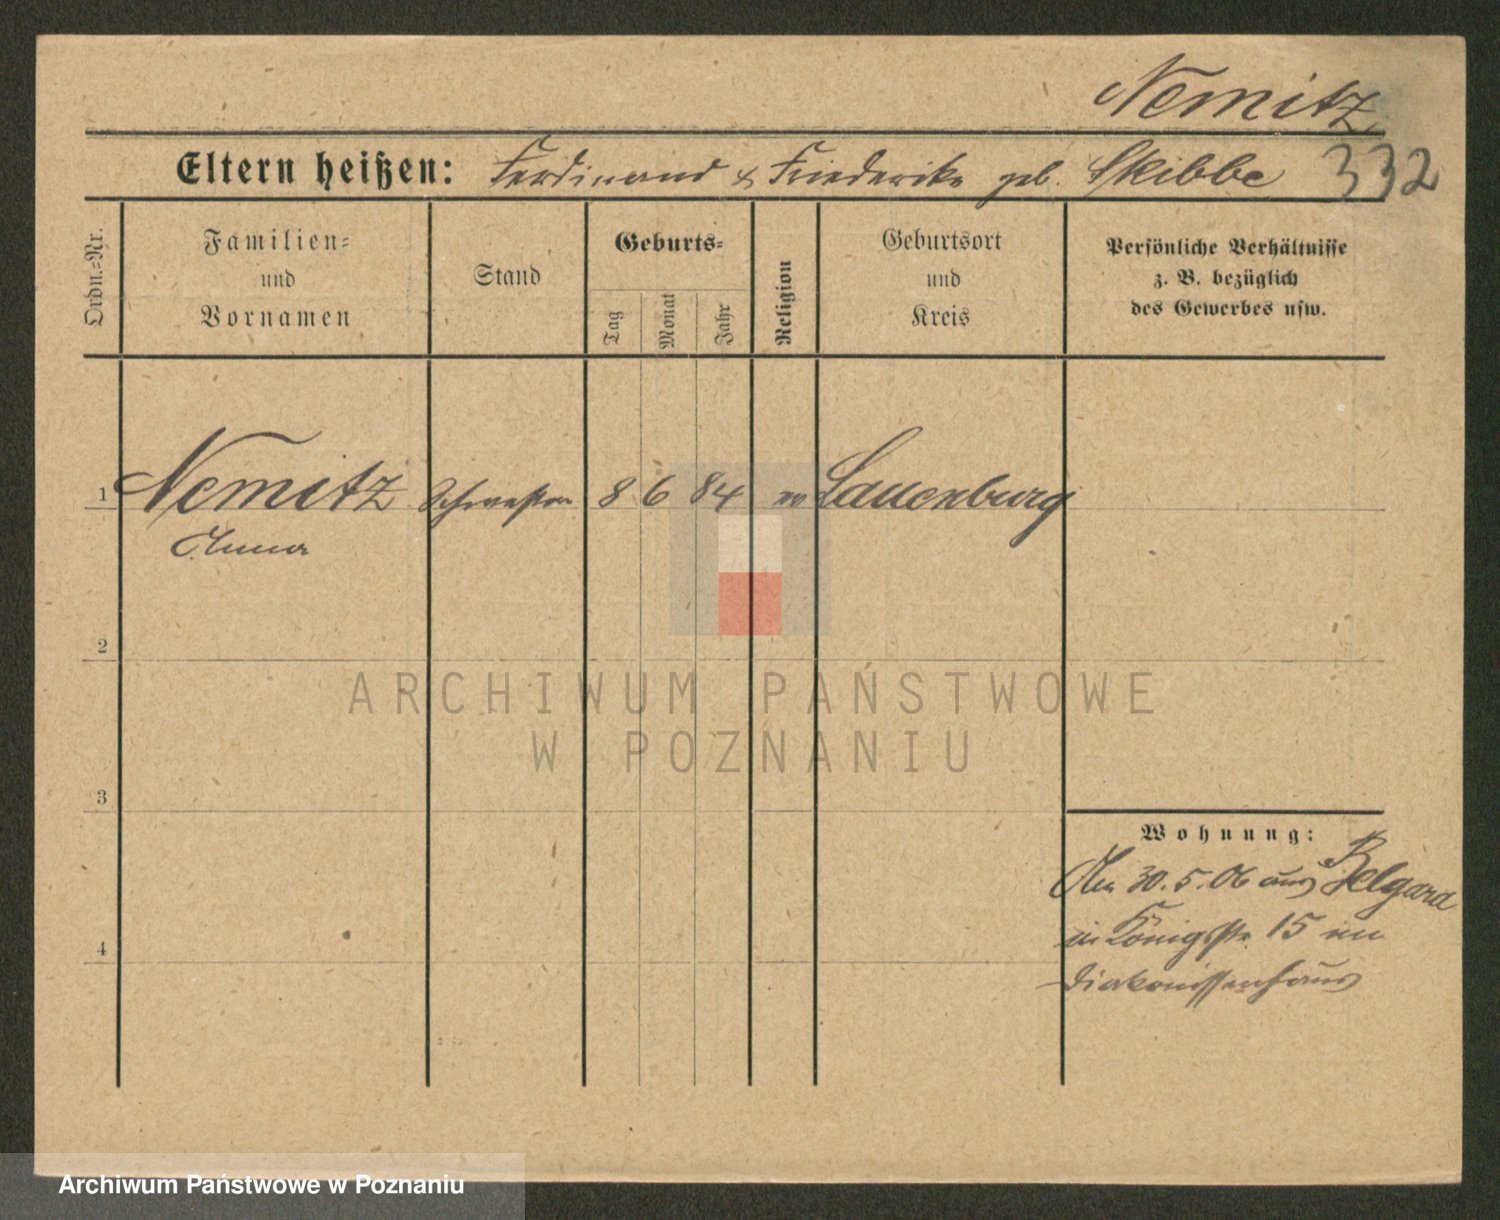 Nemitz
Eltern heißen: Ferdinand & Friederike geb. Skibbe 332
Ordn.-Nr.
Familien-
und
Vornamen
Stand
Geburts-
Tag
Monat
Jahr
Religion
Geburtsort
und
Kreis
Persönliche Verhältnisse
z. B. bezüglich
des Gewerbes usw.
1 Nemitz Schwester 8 6 84 ev Lauenburg
Anna
2
3
4
Wohnung:
Am 30.5.06 aus Belgard
in Königsstr. 15 im
Diakonissenhaus
ARCHIWUM PAŃSTWOWE
W POZNANIU
Archiwum Państwowe w Poznaniu